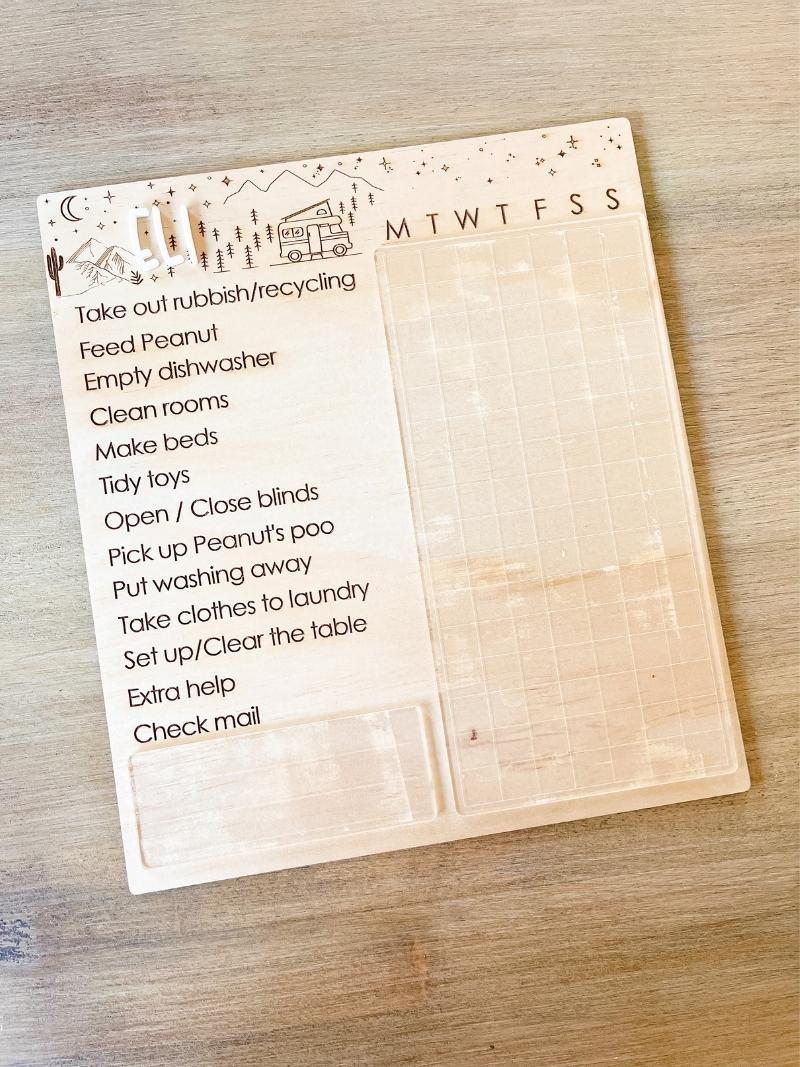 ELI
M T W T F S S
Take out rubbish/recycling
Feed Peanut
Empty dishwasher
Clean rooms
Make beds
Tidy toys
Open / Close blinds
Pick up Peanut's poo
Put washing away
Take clothes to laundry
Set up/Clear the table
Extra help
Check mail